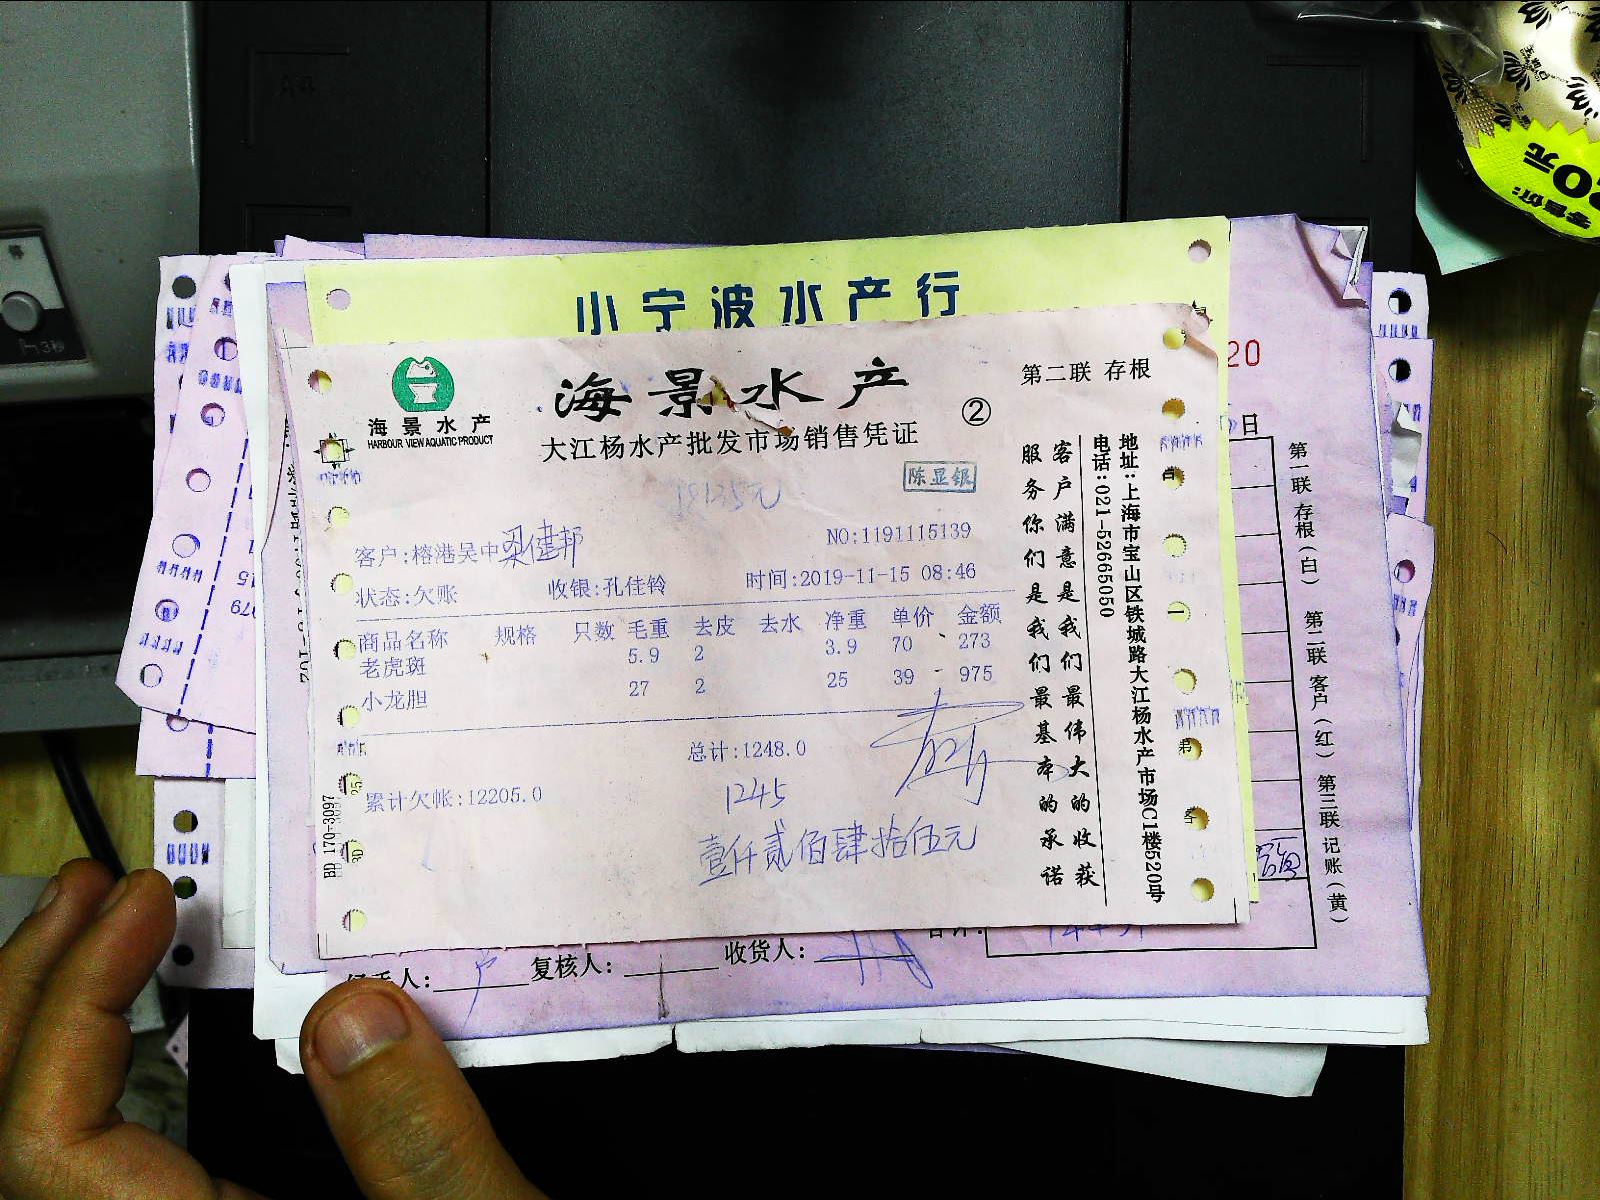 小宁波水产行
海景水产
HARBOUR VIEW AQUATIC PRODUCT
海景水产
第二联 存根
②
大江杨水产批发市场销售凭证
陈显银
18135元
NO:1191115139
客户:榕港吴中梁健邦
状态:欠账 收银:孔佳铃 时间:2019-11-15 08:46
商品名称 规格 只数 毛重 去皮 去水 净重 单价 金额
老虎斑 5.9 2 3.9 70 273
小龙胆 27 2 25 39 975
总计:1248.0
累计欠帐:12205.0
1245
壹仟贰佰肆拾伍元
客户满意是我们最伟大的收获
服务你们是我们最基本的承诺
地址:上海市宝山区铁城路大江杨水产市场C1楼520号
电话:021-52665050
BD 170-3097
20
日
第一联 存根(白) 第二联 客户(红) 第三联 记账(黄)
复核人:
收货人:
零售价:
元